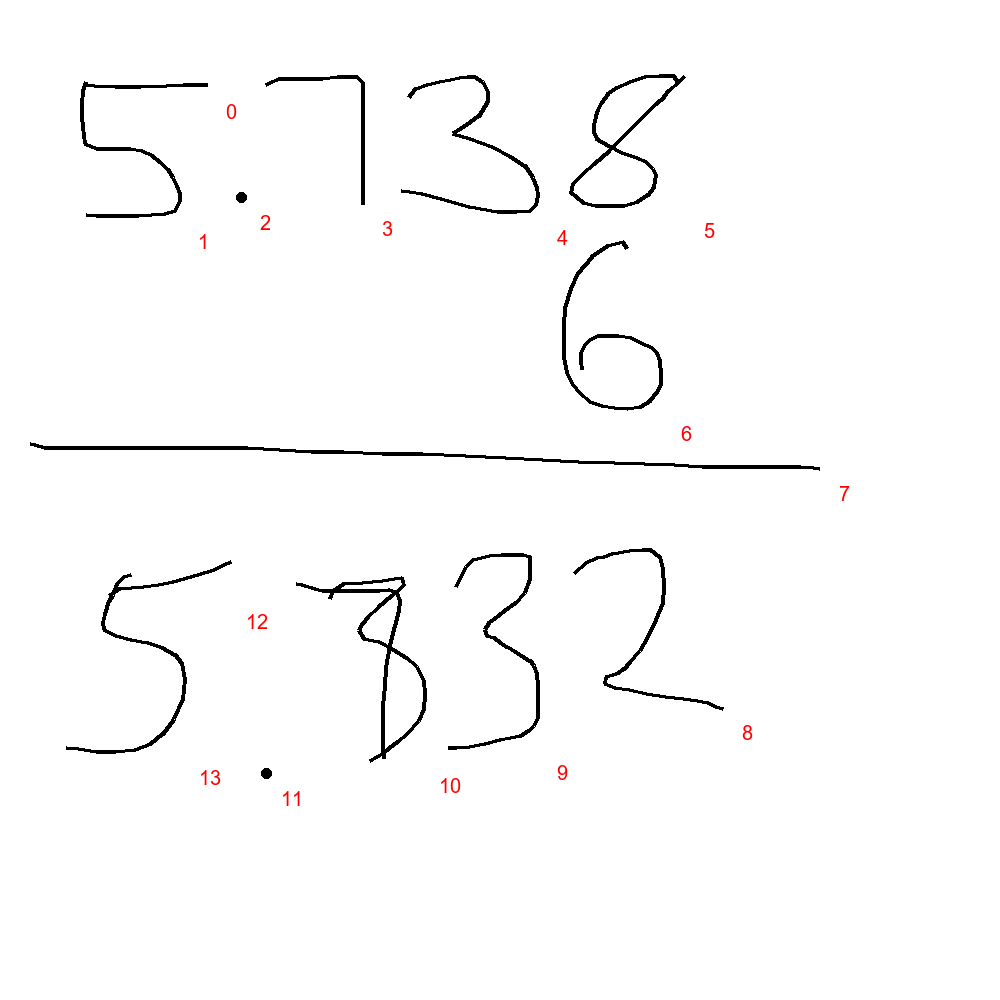 5.738
0
1 2 3 4 5
6
6
7
5.32
12
8
13 11 10 9